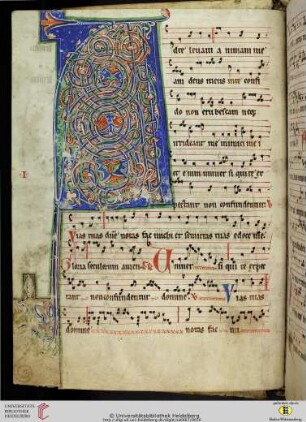 dte leuaui animam me
am deus meus in te confi
do non erubescam neq
irrideant me inimici mei
et enim uniuersi qui te ex
pectant non confundentur
Vias tuas dne notas fac michi et semitas tuas edoce me
seculorum amen Vniuersi qui te expec
tant non confundentur domine Vias tuas
domine notas fac mi
I
UNIVERSITÄTS-
BIBLIOTHEK
HEIDELBERG
© Universitätsbibliothek Heidelberg
Baden-Württemberg